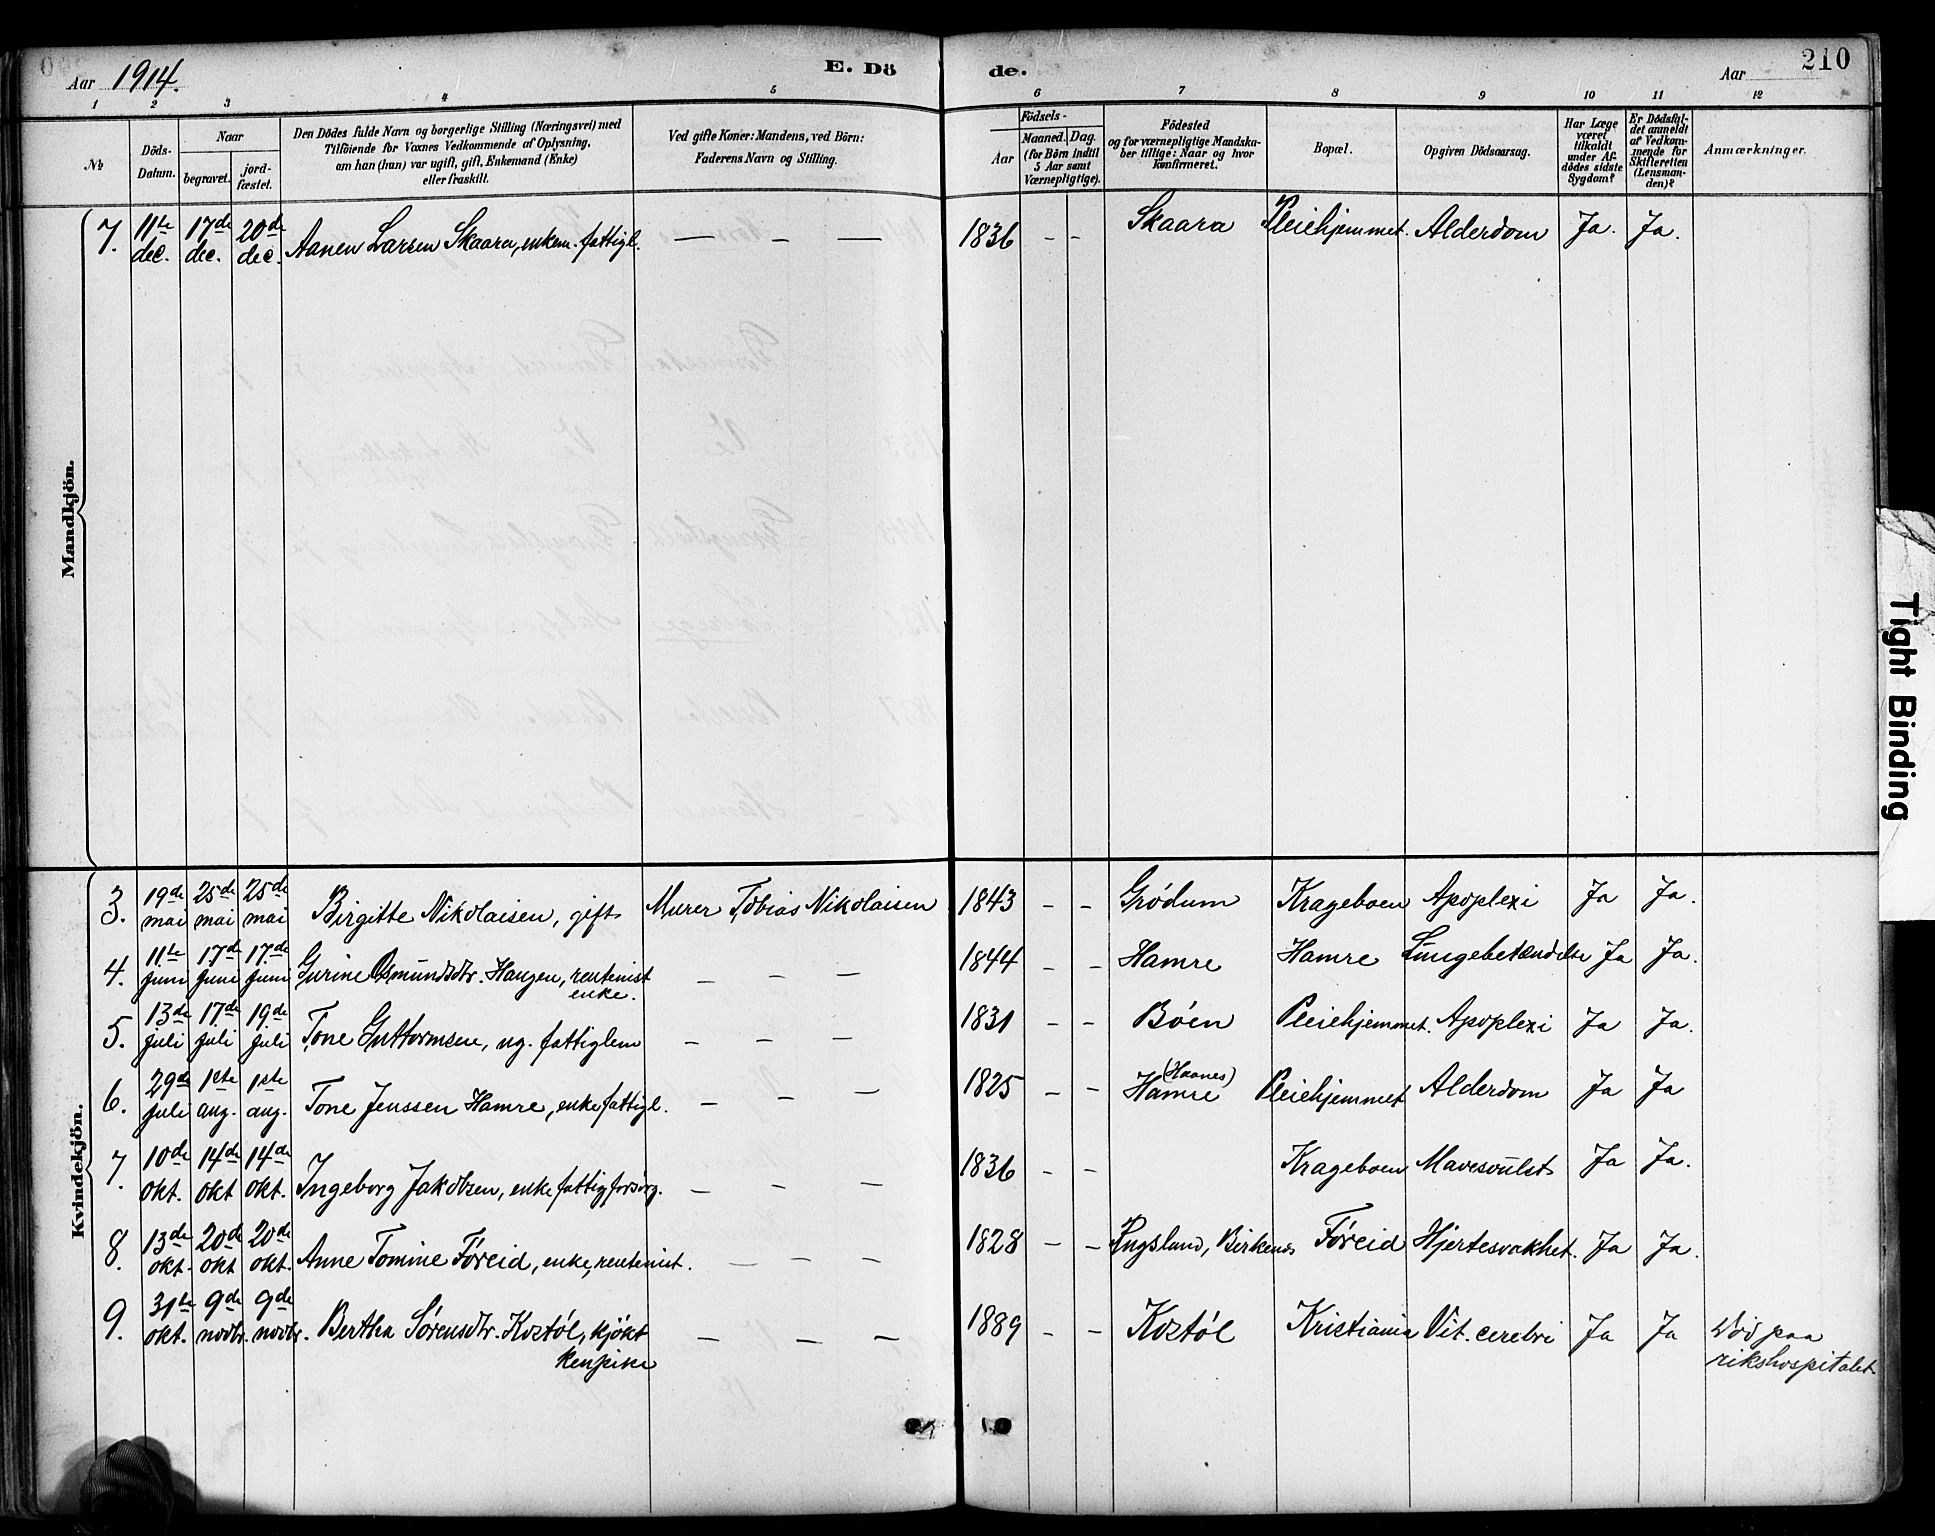 Aar 1914. E. Dö de. Aar 210
1 2 3 4 5 6 7 8 9 10 11 12
No
Döds-Datum.
Naar
begravet. jord-fæstet.
Den Dödes fulde Navn og borgerlige Stilling (Næringsvei) med
Tilföiende for Voxnes Vedkommende af Oplysning,
om han (hun) var ugift, gift, Enkemand (Enke)
eller fraskilt.
Ved gifte Koner: Mandens, ved Börn:
Faderens Navn og Stilling.
Födsels-
Aar Maaned. Dag.
(for Börn indtil
5 Aar samt
Værnepligtige).
Födested
og for værnepligtige Mandska-
ber tillige: Naar og hvor
konfirmeret.
Bopæl.
Opgiven Dödsaarsag.
Har Læge
været
tilkaldt
under Af-
dödes sidste
Sygdom?
Er Dödsfal-
det anmeldt
af Vedkom-
mende for
Skifteretten
(Lensman-
den)?
Anmærkninger.
Mandkjön.
7. 11te dec. 17de dec. 20de dec. Aanen Larsen Skaara, enkem. fattigl. — — — 1836 – – Skaara Pleiehjemmet. Alderdom Ja. Ja.
Kvindekjön.
3. 19de mai 25de mai 25de mai Birgitte Nikolaisen, gift Murer Tobias Nikolaisen 1843 – – Grödum Krageboen Apoplexi Ja Ja.
4. 11te juni 17de juni 17de juni Gurine Osmundsdtr. Haugen, rentenist enke. — — — 1844 – – Hamre Hamre Lungebetændelse Ja Ja.
5. 13de juli 17de juli 19de juli Tone Guttormsen, ug. fattiglem — — — 1831 – – Böen Pleiehjemmet. Apoplexi Ja Ja.
6. 29de juli 1ste aug. 1ste aug. Tone Jenssen Hamre, enke fattigl. — — — 1825 – – (Haanes) Hamre Pleiehjemmet Alderdom Ja Ja
7. 10de okt. 14de okt 14de okt. Ingeborg Jakobsen, enke fattigforsörg. — — — 1836 – – Krageboen Mavesvulst Ja Ja.
8. 13de okt. 20de okt 20de okt. Anne Tomine Föreid, enke, rentenist. — — — 1828 – – Engsland, Birkenes Föreid Hjertesvakhet. Ja Ja.
9. 31te okt. 9de novbr. 9de novbr. Bertha Sörensdtr. Koztöl, kjökkenpike — — — 1889 – – Koztöl Kristiania Vit. cerebri Ja Ja Död paa
rikshospitalet
Tight Binding